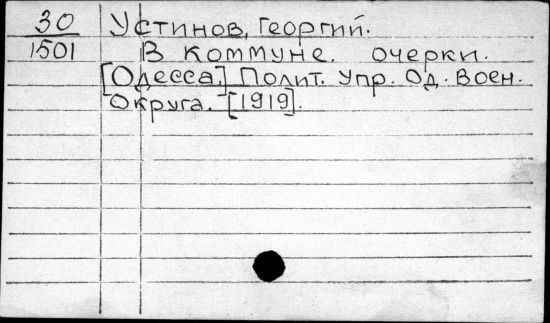 30 Устинов, Георгий.
1501 В коммуне. очерки.
[Одесса.] Полит. Упр. Од. Воен.
Округа. [1919].